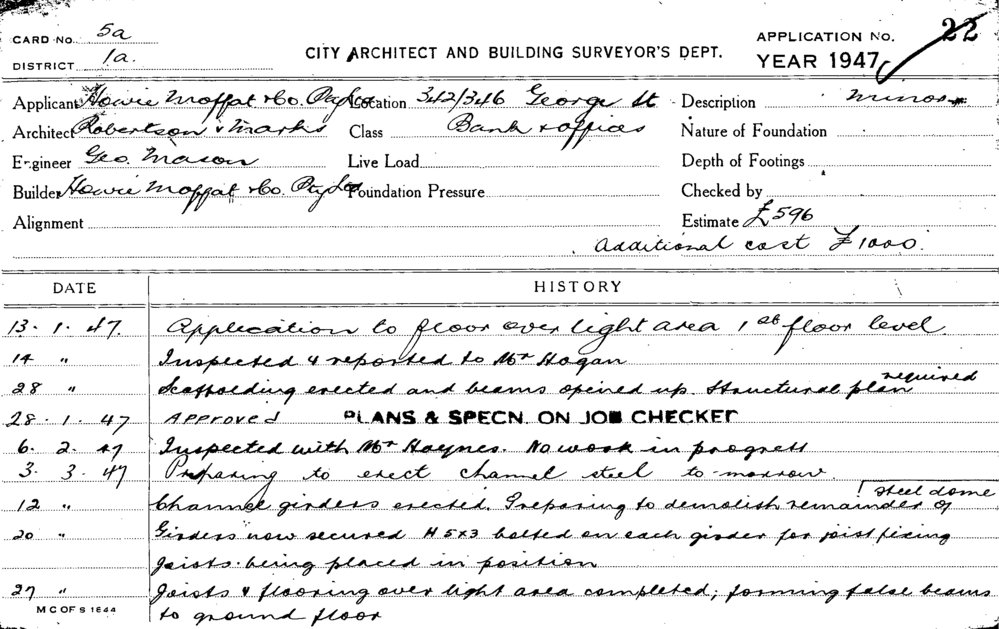 CARD NO. 5a
DISTRICT 1a.
CITY ARCHITECT AND BUILDING SURVEYOR'S DEPT.
APPLICATION NO. 22
YEAR 1947
Applicant Howie Moffat & Co. Pty Ltd Location 342/346 George St Description Minor
Architect Robertson & Marks Class Bank & offices Nature of Foundation
Engineer Geo. Mason Live Load Depth of Footings
Builder Howie Moffat & Co. Pty Ltd Foundation Pressure Checked by
Alignment Estimate £596
Additional cost £1000.
DATE HISTORY
13. 1. 47 Application to floor over light area 1st floor level
14 " Inspected & reported to Mr Hogan
28 " Scaffolding erected and beams opened up. Structural plan required
28. 1. 47 Approved PLANS & SPECN. ON JOB CHECKED
6. 2. 47 Inspected with Mr Haynes. No work in progress
3. 3. 47 Preparing to erect channel steel to-morrow.
12 " Channel girders erected. Preparing to demolish remainder of steel dome
20 " Girders now secured H 5x3 bolted on each girder for joist fixing
Joists being placed in position
27 " Joists & flooring over light area completed; forming false beams
M C OF S 1644
to ground floor